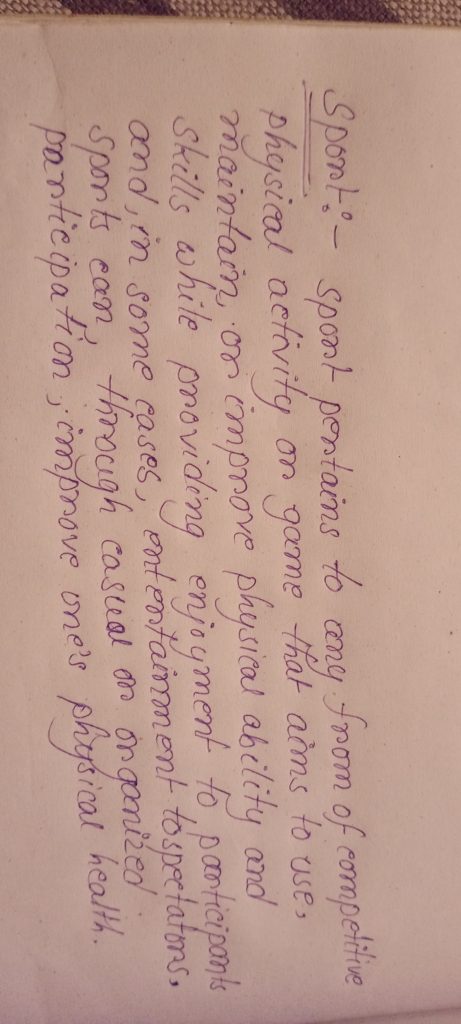 Sport:- Sport pertains to any from of competitive
physical activity or game that aims to use,
maintain, or improve physical ability and
skills while providing enjoyment to participants
and, in some cases, entertainment to spectators,
sports can, through casual or organized
participation, improve one's physical health.